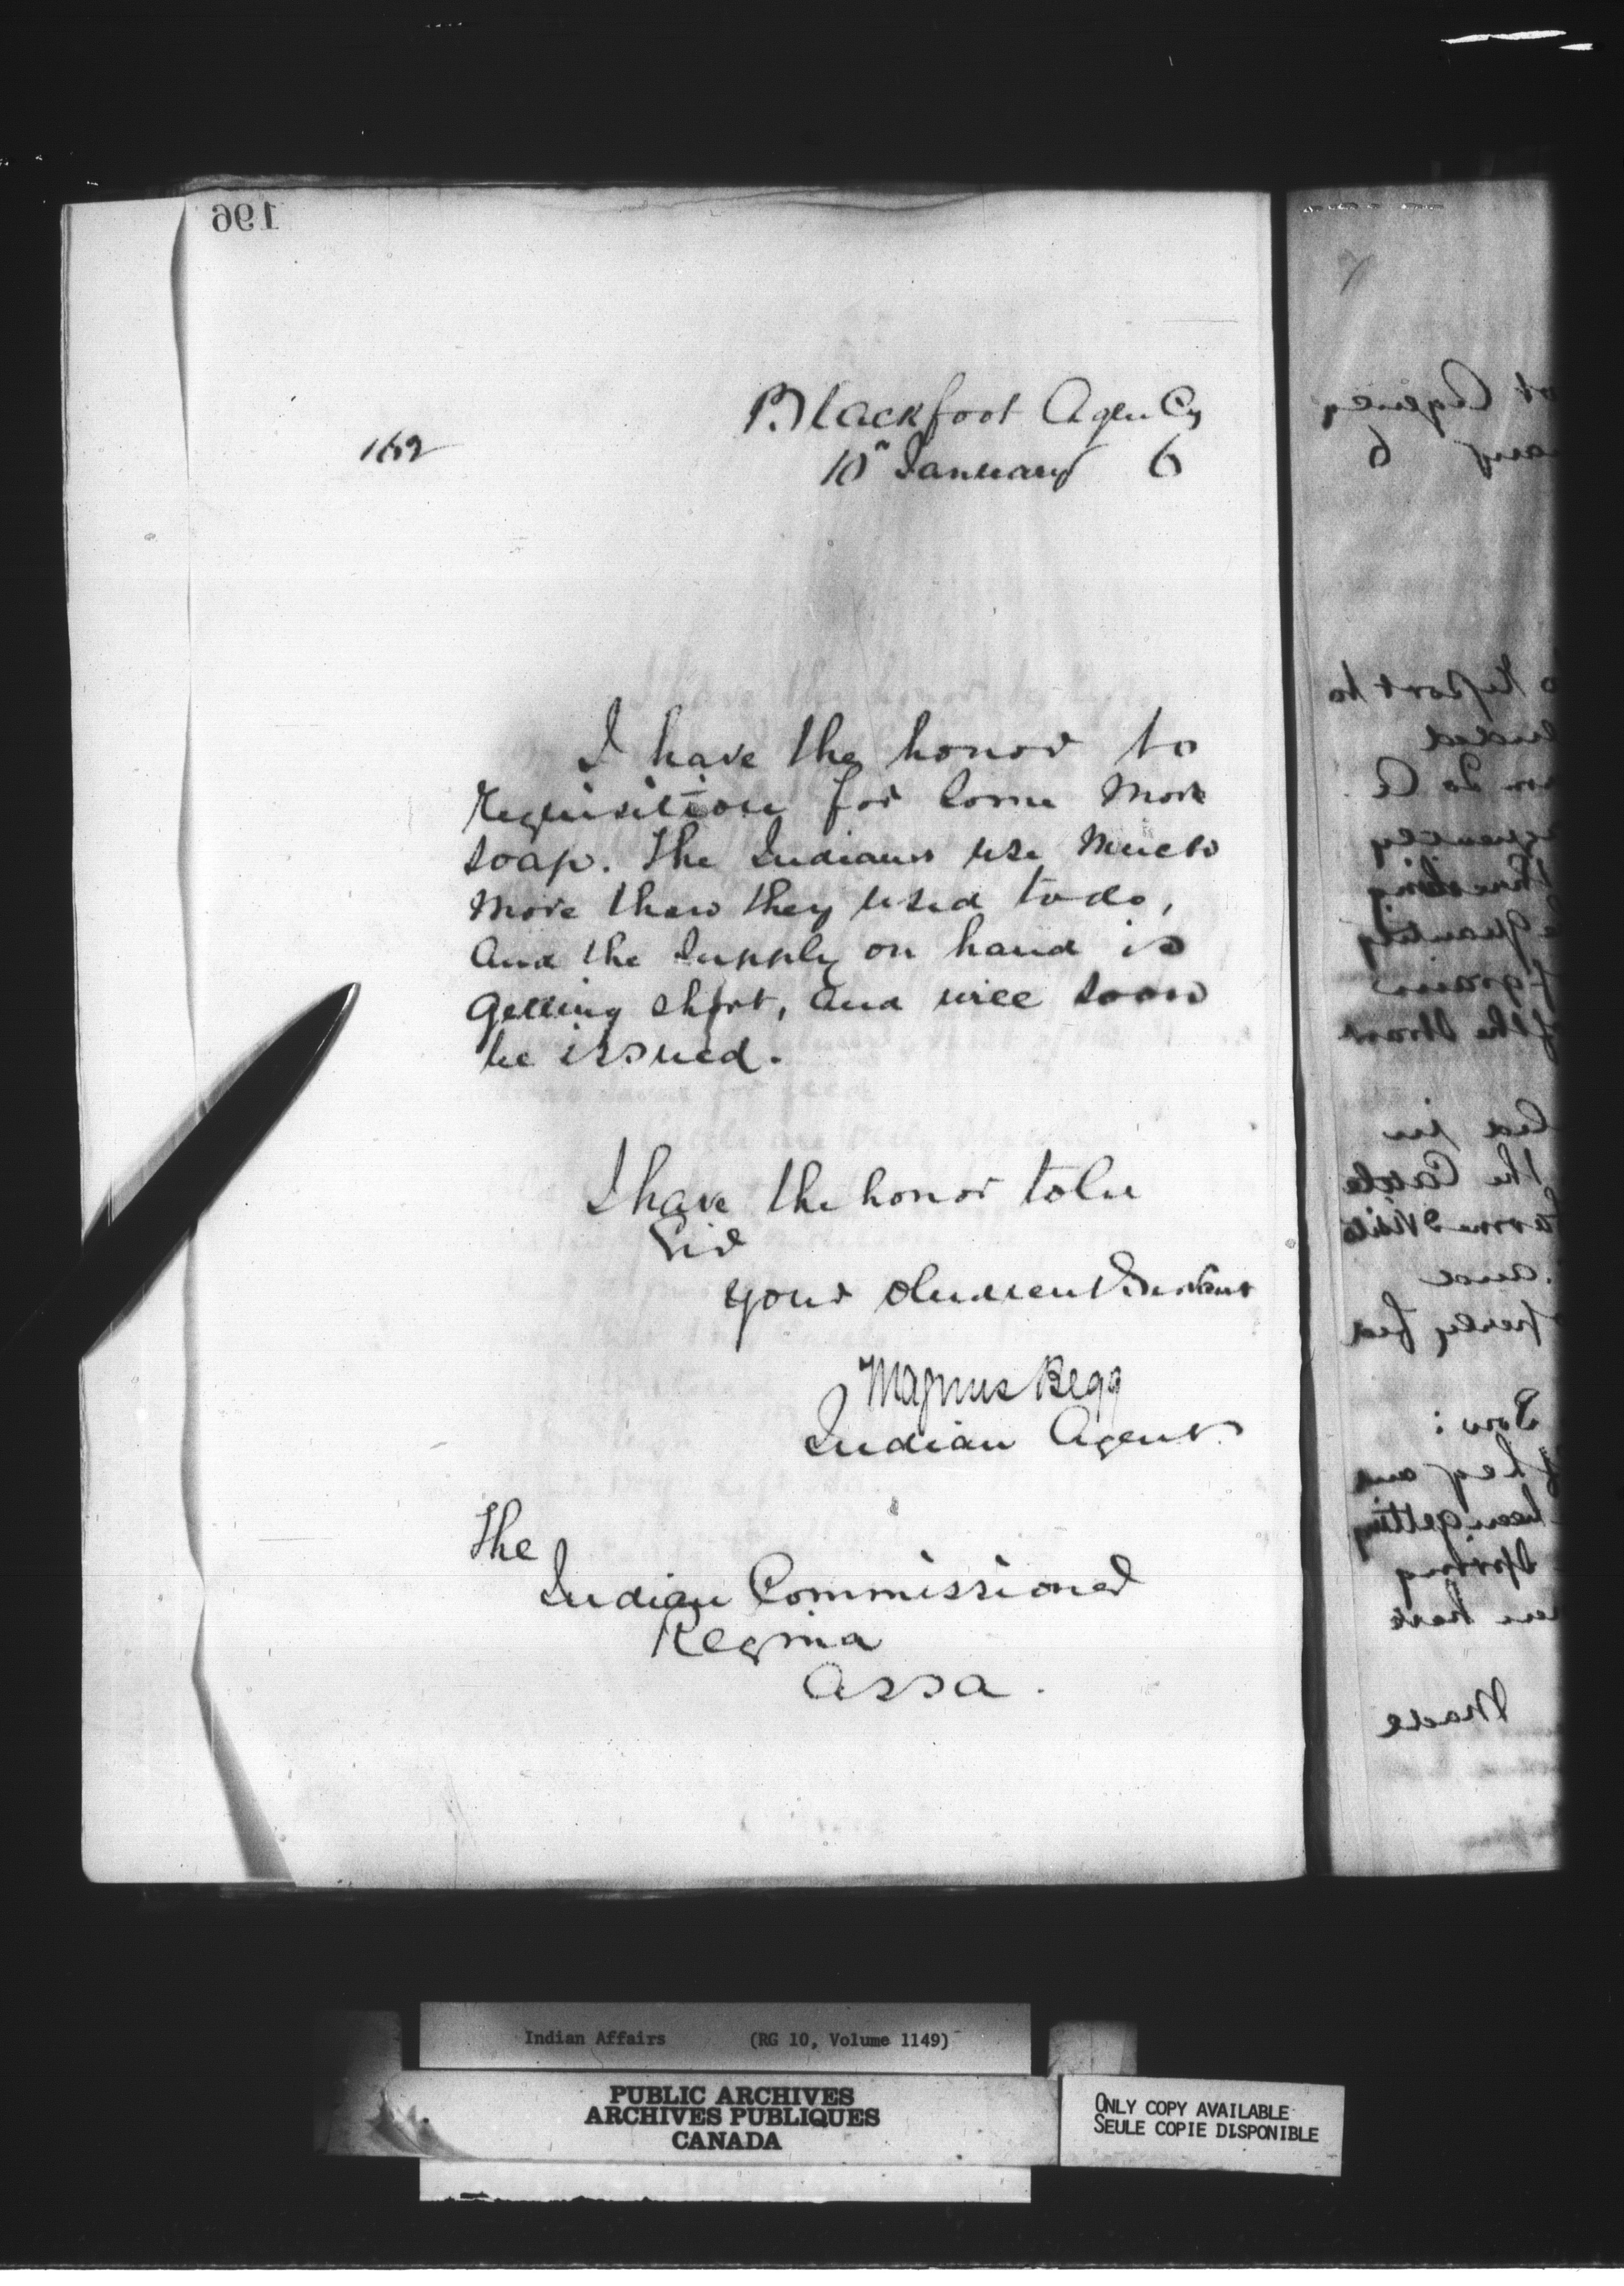 196
Blackfoot Agency
10" January 6
I have the honor to
requisition for some more
soap. The Indians use much
more than they used to do,
and the supply on hand is
getting short, and will soon
be issued.
I have the honor to be
Sir
your obedient Servant
Magnus Begg
Indian Agent.
The
Indian Commissioner
Regina
Assa.
ot Agency
uary 6
report to
the Cattle
fed
Sow:
they are
been getting
Spring
have
made
Indian Affairs (RG 10, Volume 1149)
PUBLIC ARCHIVES
ARCHIVES PUBLIQUES
CANADA
ONLY COPY AVAILABLE
SEULE COPIE DISPONIBLE